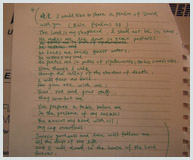 I would like to share a psalm of David
with you (
The Lord is my shepherd I shall not be in want
He makes me lie down in green pastures
he leads me beside quiet waters
he restores my soul
He guides me in paths of righteousness for his name's sake
Even though I walk
through the valley of the shadow of death,
I will fear no evil,
for you are with me;
your rod and your staff,
they comfort me.
You prepare a table before me
in the presence of my enemies
You anoint my head with oil
my cup overflows
Surely goodness and love will follow me
all the days of my life
and I will dwell in the house of the Lord
forever